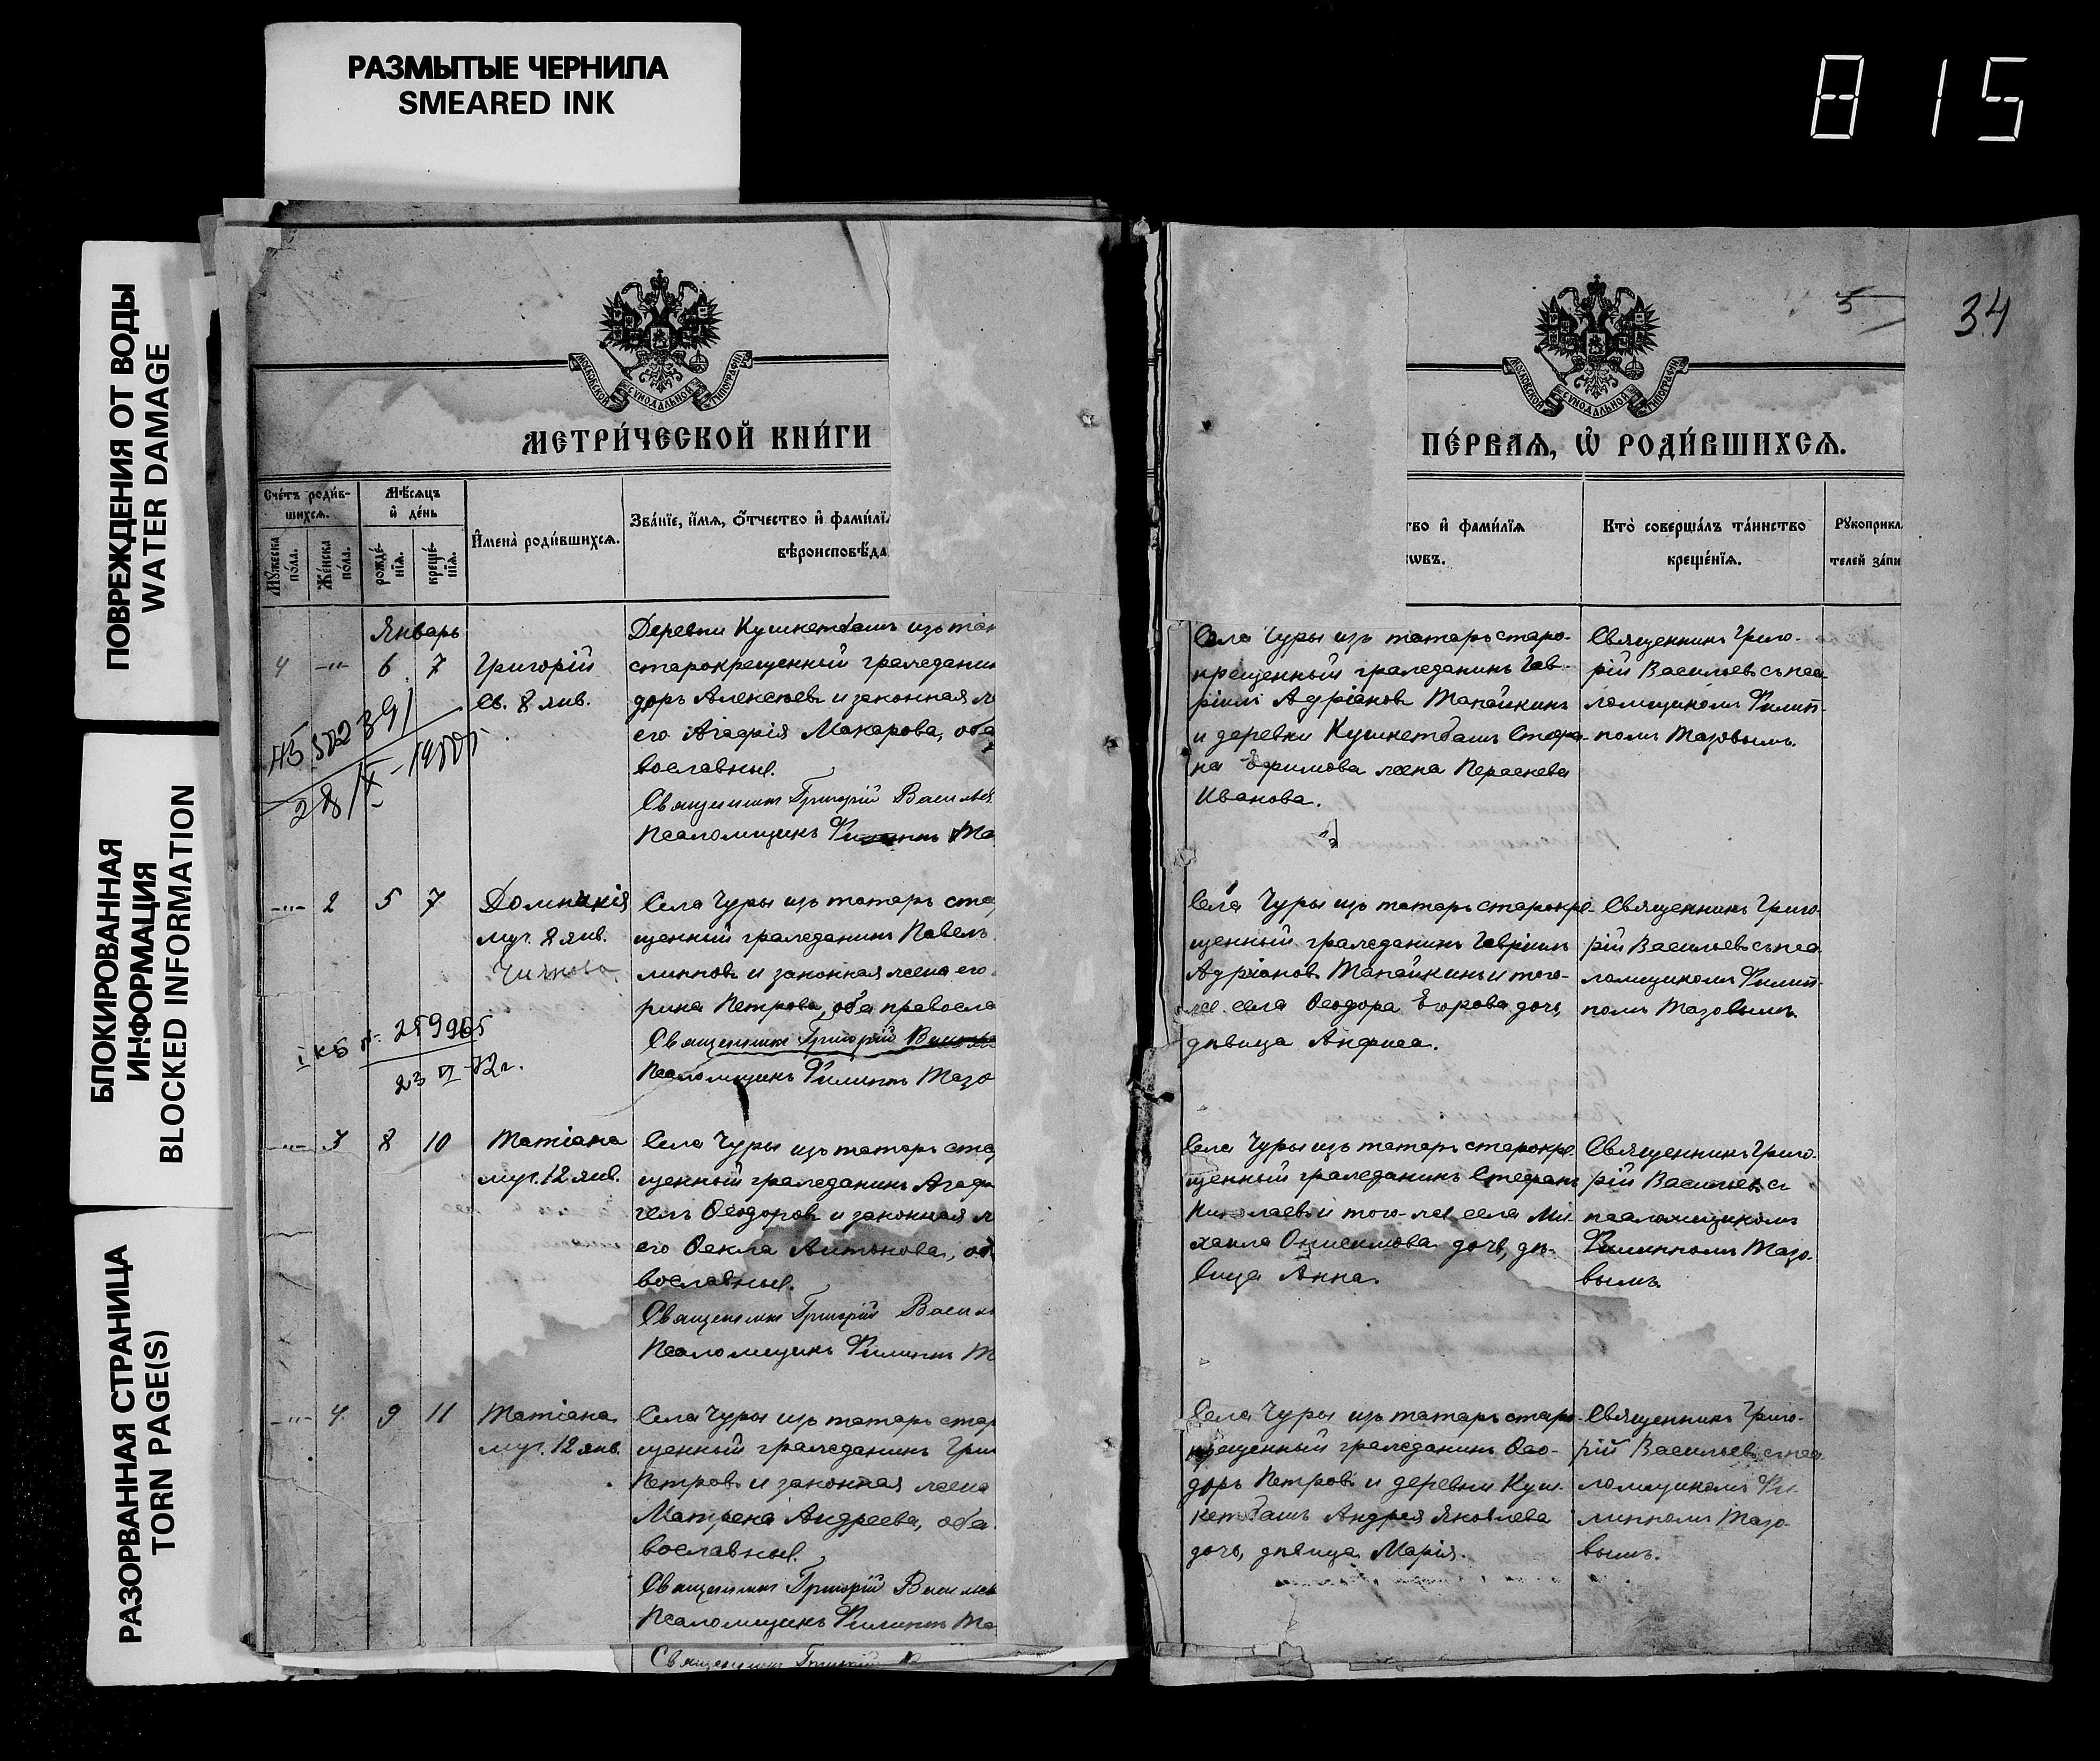 РАЗМЫТЫЕ ЧЕРНИЛА
SMEARED INK
815
ПОВРЕЖДЕНИЯ ОТ ВОДЫ
WATER DAMAGE
БЛОКИРОВАННАЯ
ИНФОРМАЦИЯ
BLOCKED INFORMATION
РАЗОРВАННАЯ СТРАНИЦА
TORN PAGE(S)
МОСКОВСКОЙ СѴНОДАЛЬНОЙ ТИПОГРАФІИ
МЕТРИ́ЧЕСКОЙ КНИ́ГИ
Сче́тъ роди́в-
шихсѧ.
Мꙋ́жеска
по́ла.
Же́нска
по́ла.
Мѣ́сѧцъ
и҆ де́нь
рожде́-
нїѧ.
креще́-
нїѧ.
И҆мена̀ роди́вшихсѧ.
Зва́нїе, и҆́мѧ, ѻ҆́тчество и҆ фами́лїѧ
вѣроисповѣ́да
Январь
4 -"- 6 7 Григорій
Св. 8 янв.
Деревни Кушкетбашъ изъ тат
старокрещенный гражданин
доръ Алексѣевъ и законная ж
его Агафія Макарова, оба
вославные.
Священникъ Григорій Василье
Псаломщикъ Филиппъ Ма
28/X-1980г.
-"- 2 5 7 Домникія
муч. 8 янв.
Села Чуры изъ татаръ ста
щенный гражданинъ Павелъ
липповъ и законная жена его
рина Петрова, оба правосла
Священникъ Григорій Василье
Псаломщикъ Филиппъ Мазо
259965
23 VI-72г.
-"- 3 8 10 Татіана
муч. 12 янв.
Села Чуры изъ татаръ ста
щенный гражданинъ Агаф
гелъ Ѳеодоровъ и законная ж
его Ѳекла Антонова, об
вославные.
Священникъ Григорій Василь
Псаломщикъ Филиппъ М
-"- 4 9 11 Татіана
муч. 12 янв.
Села Чуры изъ татаръ стар
щенный гражданинъ Гри
Петровъ и законная жена
Матрена Андреева, оба
вославные.
Священникъ Григорій Василье
Псаломщикъ Филиппъ Ма
Священникъ Григорій
5
34
МОСКОВСКОЙ СѴНОДАЛЬНОЙ ТИПОГРАФІИ
ПЕ́РВАѦ, Ѡ҆ РОДИ́ВШИХСѦ.
тво и҆ фами́лїѧ
ѡвъ.
Кто̀ соверша́лъ та́инство
креще́нїѧ.
Рꙋкоприкл
телей за́пи
Села Чуры изъ татаръ старо-
крещенный гражданинъ Гав-
ріилъ Адріановъ Тапайкинъ
и деревни Кушкетбашъ Стефа-
на Ефимова жена Параскева
Иванова.
Священникъ Григо-
рій Васильевъ съ пса-
ломщикомъ Филип-
помъ Мазовымъ.
Села Чуры изъ татаръ старокре-
щенный гражданинъ Гавріилъ
Адріановъ Тапайкинъ и того-
же села Ѳеодора Егорова дочь,
дѣвица Анфиса.
Священникъ Григо-
рій Васильевъ съ пса-
ломщикомъ Филип-
помъ Мазовымъ.
Села Чуры изъ татаръ старокре-
щенный гражданинъ Стефанъ
Николаевъ и того-же села Ми-
хаила Онисимова дочь, дѣ-
вица Анна.
Священникъ Григо-
рій Васильевъ съ
псаломщикомъ
Филиппомъ Мазо-
вымъ.
Села Чуры изъ татаръ старо-
крещенный гражданинъ Ѳео-
доръ Петровъ и деревни Куш-
кетбашъ Андрея Яковлева
дочь, дѣвица Марія.
Священникъ Григо-
рій Васильевъ съ пса-
ломщикомъ Фи-
липпомъ Мазо-
вымъ.